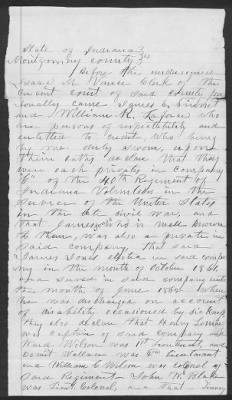 State of Indiana }
Montgomery county } ss
Before the undersigned
Isaac M. Vance Clerk of the
Circuit court of said county per
sonally came James E.
and William M. who
are persons of respectability and
entitled to credit who being
by me duly sworn, upon
their oaths declare that they
were each privates in company
of the 40th Regiment of
Indiana Volunteers in the
service of the United States
in the late civil war, and
that James is well known
to them, was also a private in
said company, that said
James enlisted in said compa
ny in the month of October 1861
and served in said company until
the month of June 1862 when
he was discharged on account
of disability occasioned by sickness
They also declare that
was captain of said company and
Ward Wilson was 1st Lieutenant and
Wallace was 2nd Lieutenant
and William C. Wilson was colonel of
said Regiment John W. Blake
was Lieut. Colonel, and that